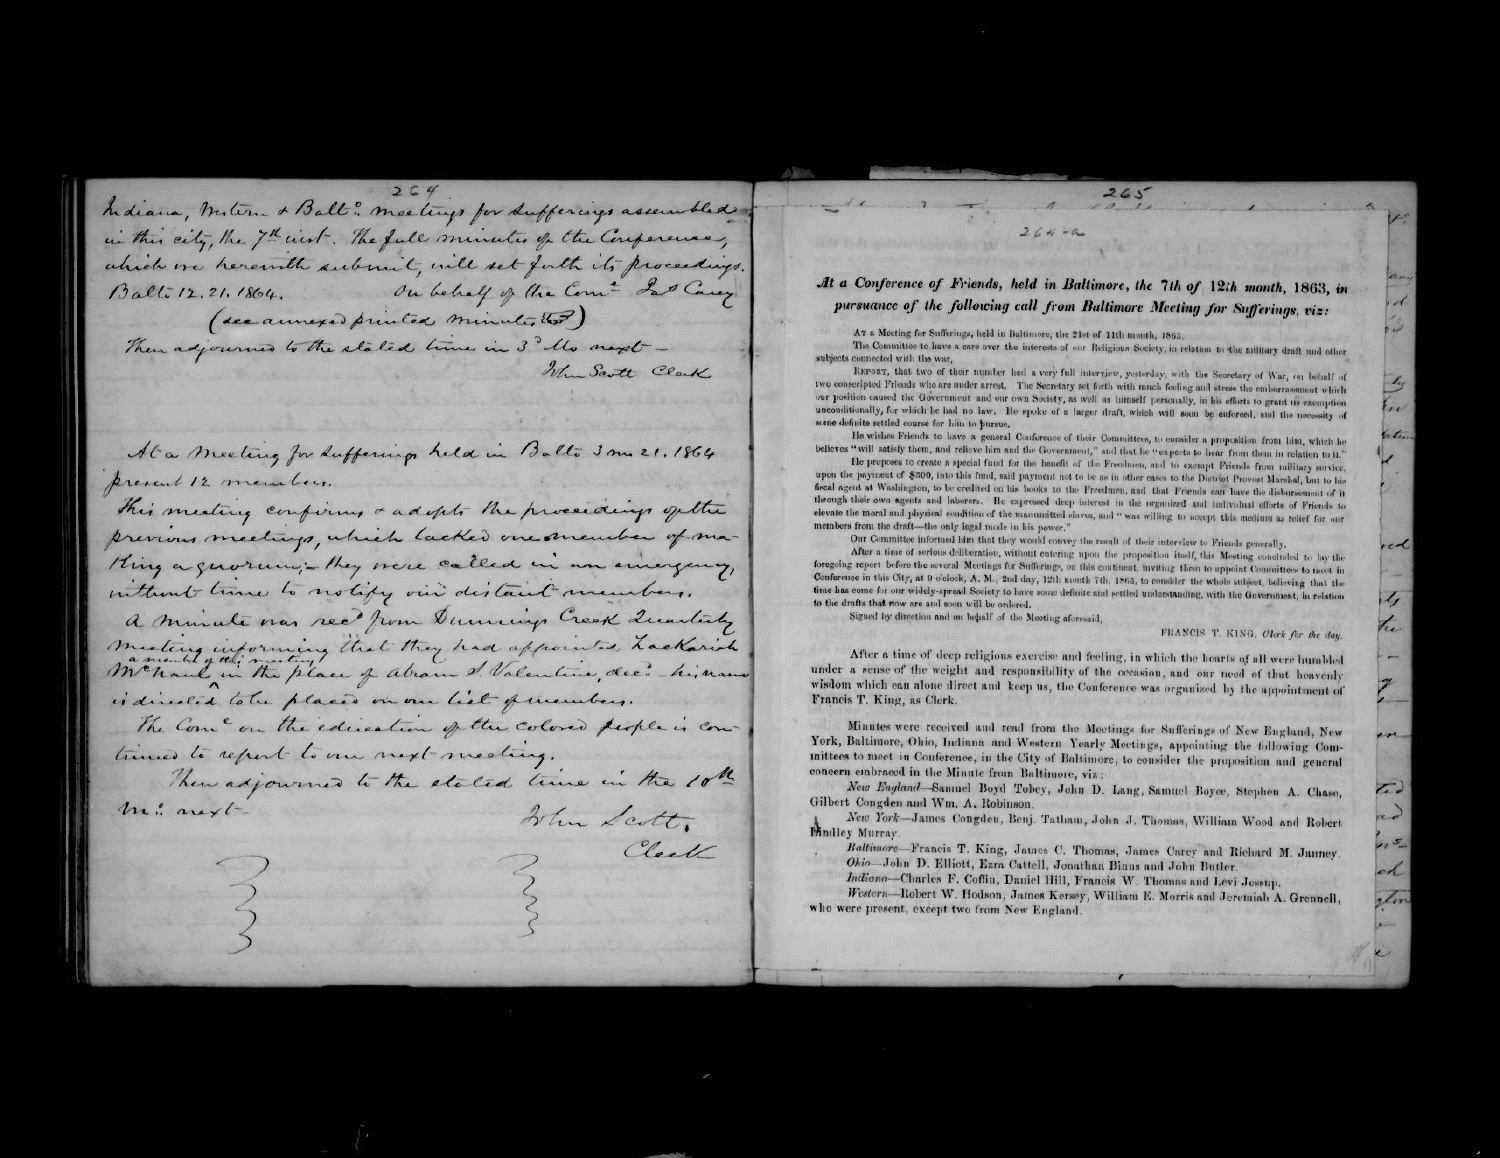 264
Indiana, Western & Balto. meetings for sufferings assembled
in this city, the 7th inst. The full minutes of the Conference,
which we herewith submit, will set forth its proceedings.
Balto 12. 21. 1864. On behalf of the Come Jas Carey
(see annexed printed minutes)
Then adjourned to the stated time in 3d Mo next —
John Scott Clerk
At a Meeting for Sufferings held in Balto 3 mo 21. 1864
present 12 members.
This meeting confirms & adopts the proceedings of the
previous meetings, which lacked one member of ma-
king a quorum; – they were called in an emergency,
without time to notify our distant members.
A minute was recd from Dunnings Creek Quarterly
meeting informing that they had appointed Zackariah
a member of this meeting
McNaul in the place of Abram S. Valentine, decd – his name
is directed to be placed on our list of members.
The Come on the education of the colored people is con-
tinued to report to our next meeting.
Then adjourned to the stated time in the 10th
Mo: next –
John Scott,
Clerk
265
264-a
At a Conference of Friends, held in Baltimore, the 7th of 12th month, 1863, in
pursuance of the following call from Baltimore Meeting for Sufferings, viz:
At a Meeting for Sufferings, held in Baltimore, the 21st of 11th month, 1863.
The Committee to have a care over the interests of our Religious Society, in relation to the military draft and other
subjects connected with the war,
Report, that two of their number had a very full interview, yesterday, with the Secretary of War, on behalf of
two conscripted Friends who are under arrest. The Secretary set forth with much feeling and stress the embarrassment which
our position caused the Government and our own Society, as well as himself personally, in his efforts to grant us exemption
unconditionally, for which he had no law. He spoke of a larger draft, which will soon be enforced, and the necessity of
some definite settled course for him to pursue.
He wishes Friends to have a general Conference of their Committees, to consider a proposition from him, which he
believes "will satisfy them, and relieve him and the Government," and that he "expects to hear from them in relation to it."
He proposes to create a special fund for the benefit of the Freedmen, and to exempt Friends from military service,
upon the payment of $300, into this fund, said payment not to be as in other cases to the District Provost Marshal, but to his
fiscal agent at Washington, to be credited on his books to the Freedmen, and that Friends can have the disbursement of it
through their own agents and laborers. He expressed deep interest in the organized and individual efforts of Friends to
elevate the moral and physical condition of the manumitted slaves, and "was willing to accept this medium as relief for our
members from the draft—the only legal mode in his power."
Our Committee informed him that they would convey the result of their interview to Friends generally.
After a time of serious deliberation, without entering upon the proposition itself, this Meeting concluded to lay the
foregoing report before the several Meetings for Sufferings, on this continent, inviting them to appoint Committees to meet in
Conference in this City, at 9 o'clock, A. M., 2nd day, 12th month 7th, 1863, to consider the whole subject, believing that the
time has come for our widely-spread Society to have some definite and settled understanding, with the Government, in relation
to the drafts that now are and soon will be ordered.
Signed by direction and on behalf of the Meeting aforesaid,
FRANCIS T. KING, Clerk for the day.
After a time of deep religious exercise and feeling, in which the hearts of all were humbled
under a sense of the weight and responsibility of the occasion, and our need of that heavenly
wisdom which can alone direct and keep us, the Conference was organized by the appointment of
Francis T. King, as Clerk.
Minutes were received and read from the Meetings for Sufferings of New England, New
York, Baltimore, Ohio, Indiana and Western Yearly Meetings, appointing the following Com-
mittees to meet in Conference, in the City of Baltimore, to consider the proposition and general
concern embraced in the Minute from Baltimore, viz:
New England—Samuel Boyd Tobey, John D. Lang, Samuel Boyce, Stephen A. Chase,
Gilbert Congden and Wm. A. Robinson.
New York—James Congden, Benj. Tatham, John J. Thomas, William Wood and Robert
Lindley Murray.
Baltimore—Francis T. King, James C. Thomas, James Carey and Richard M. Janney.
Ohio—John D. Elliott, Ezra Cattell, Jonathan Binns and John Butler.
Indiana—Charles F. Coffin, Daniel Hill, Francis W. Thomas and Levi Jessup.
Western—Robert W. Hodson, James Kersey, William E. Morris and Jeremiah A. Grennell,
who were present, except two from New England.